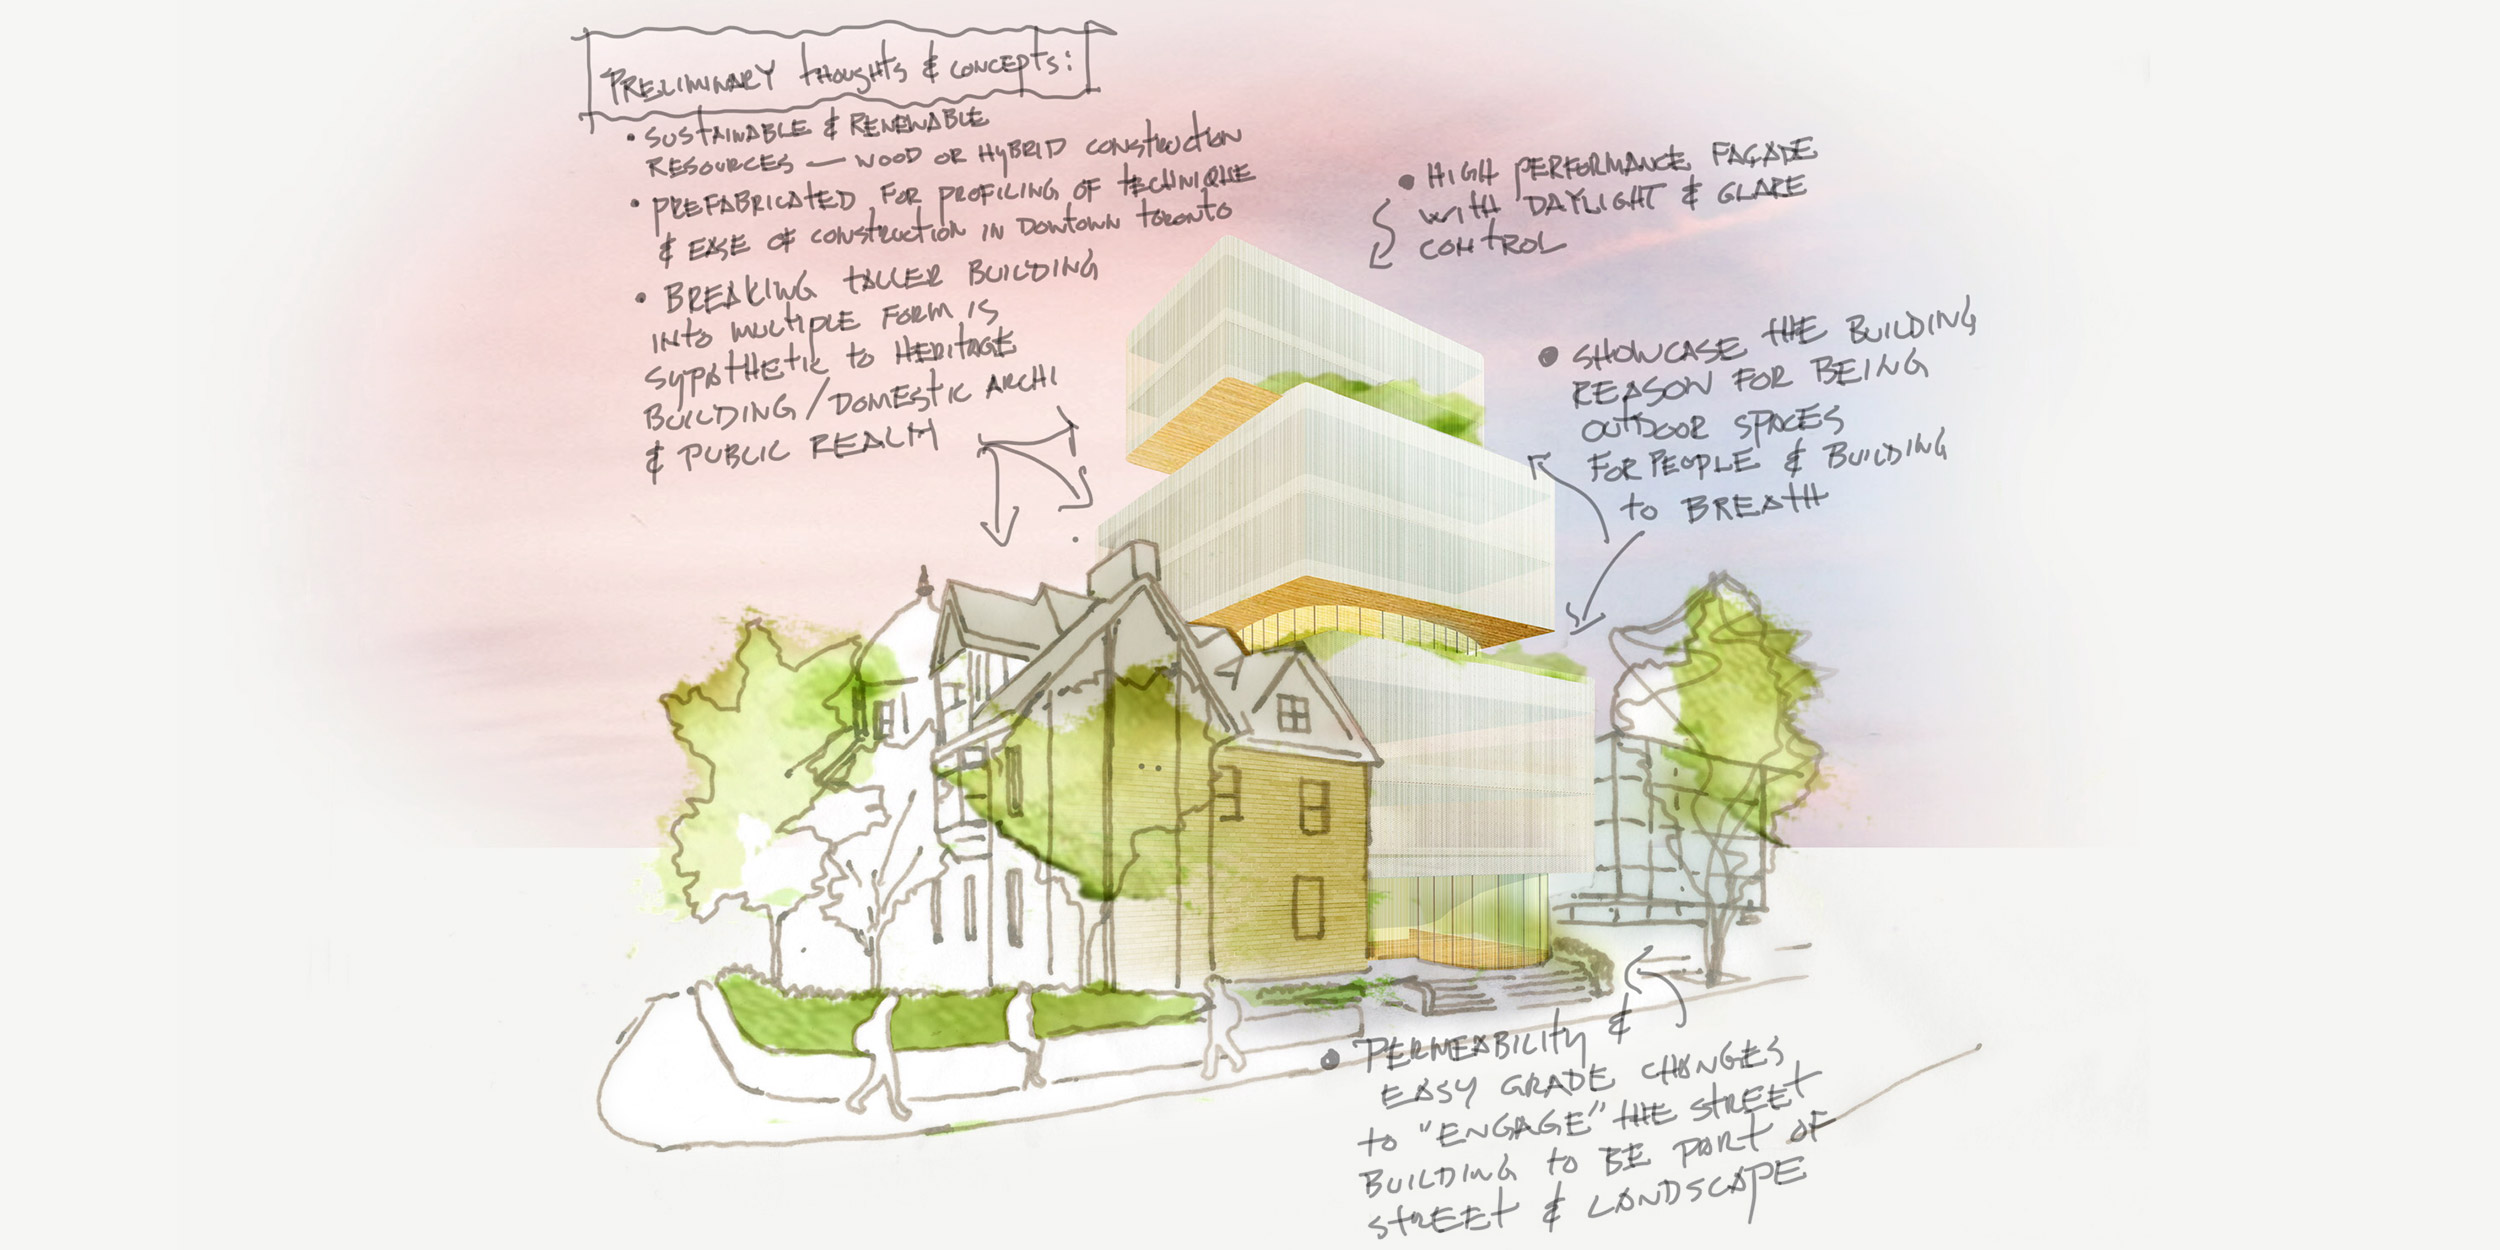 PRELIMINARY thoughts & concepts:
• SUSTAINABLE & RENEWABLE
RESOURCES — WOOD OR HYBRID CONSTRUCTION
• PREFABRICATED FOR PROFILING OF TECHNIQUE
& EASE OF CONSTRUCTION IN DOWTOWN TORONTO
• BREAKING TALLER BUILDING
INTO MULTIPLE FORM IS
SYPATHETIC TO HERITAGE
BUILDING / DOMESTIC ARCHI
& PUBLIC REALM
• HIGH PERFORMANCE FAÇADE
WITH DAYLIGHT & GLARE
CONTROL
• SHOWCASE THE BUILDING
REASON FOR BEING
OUTDOOR SPACES
FOR PEOPLE & BUILDING
TO BREATH
• PERMEABILITY &
EASY GRADE CHANGES
TO "ENGAGE" THE STREET
BUILDING TO BE PART OF
STREET & LANDSCAPE